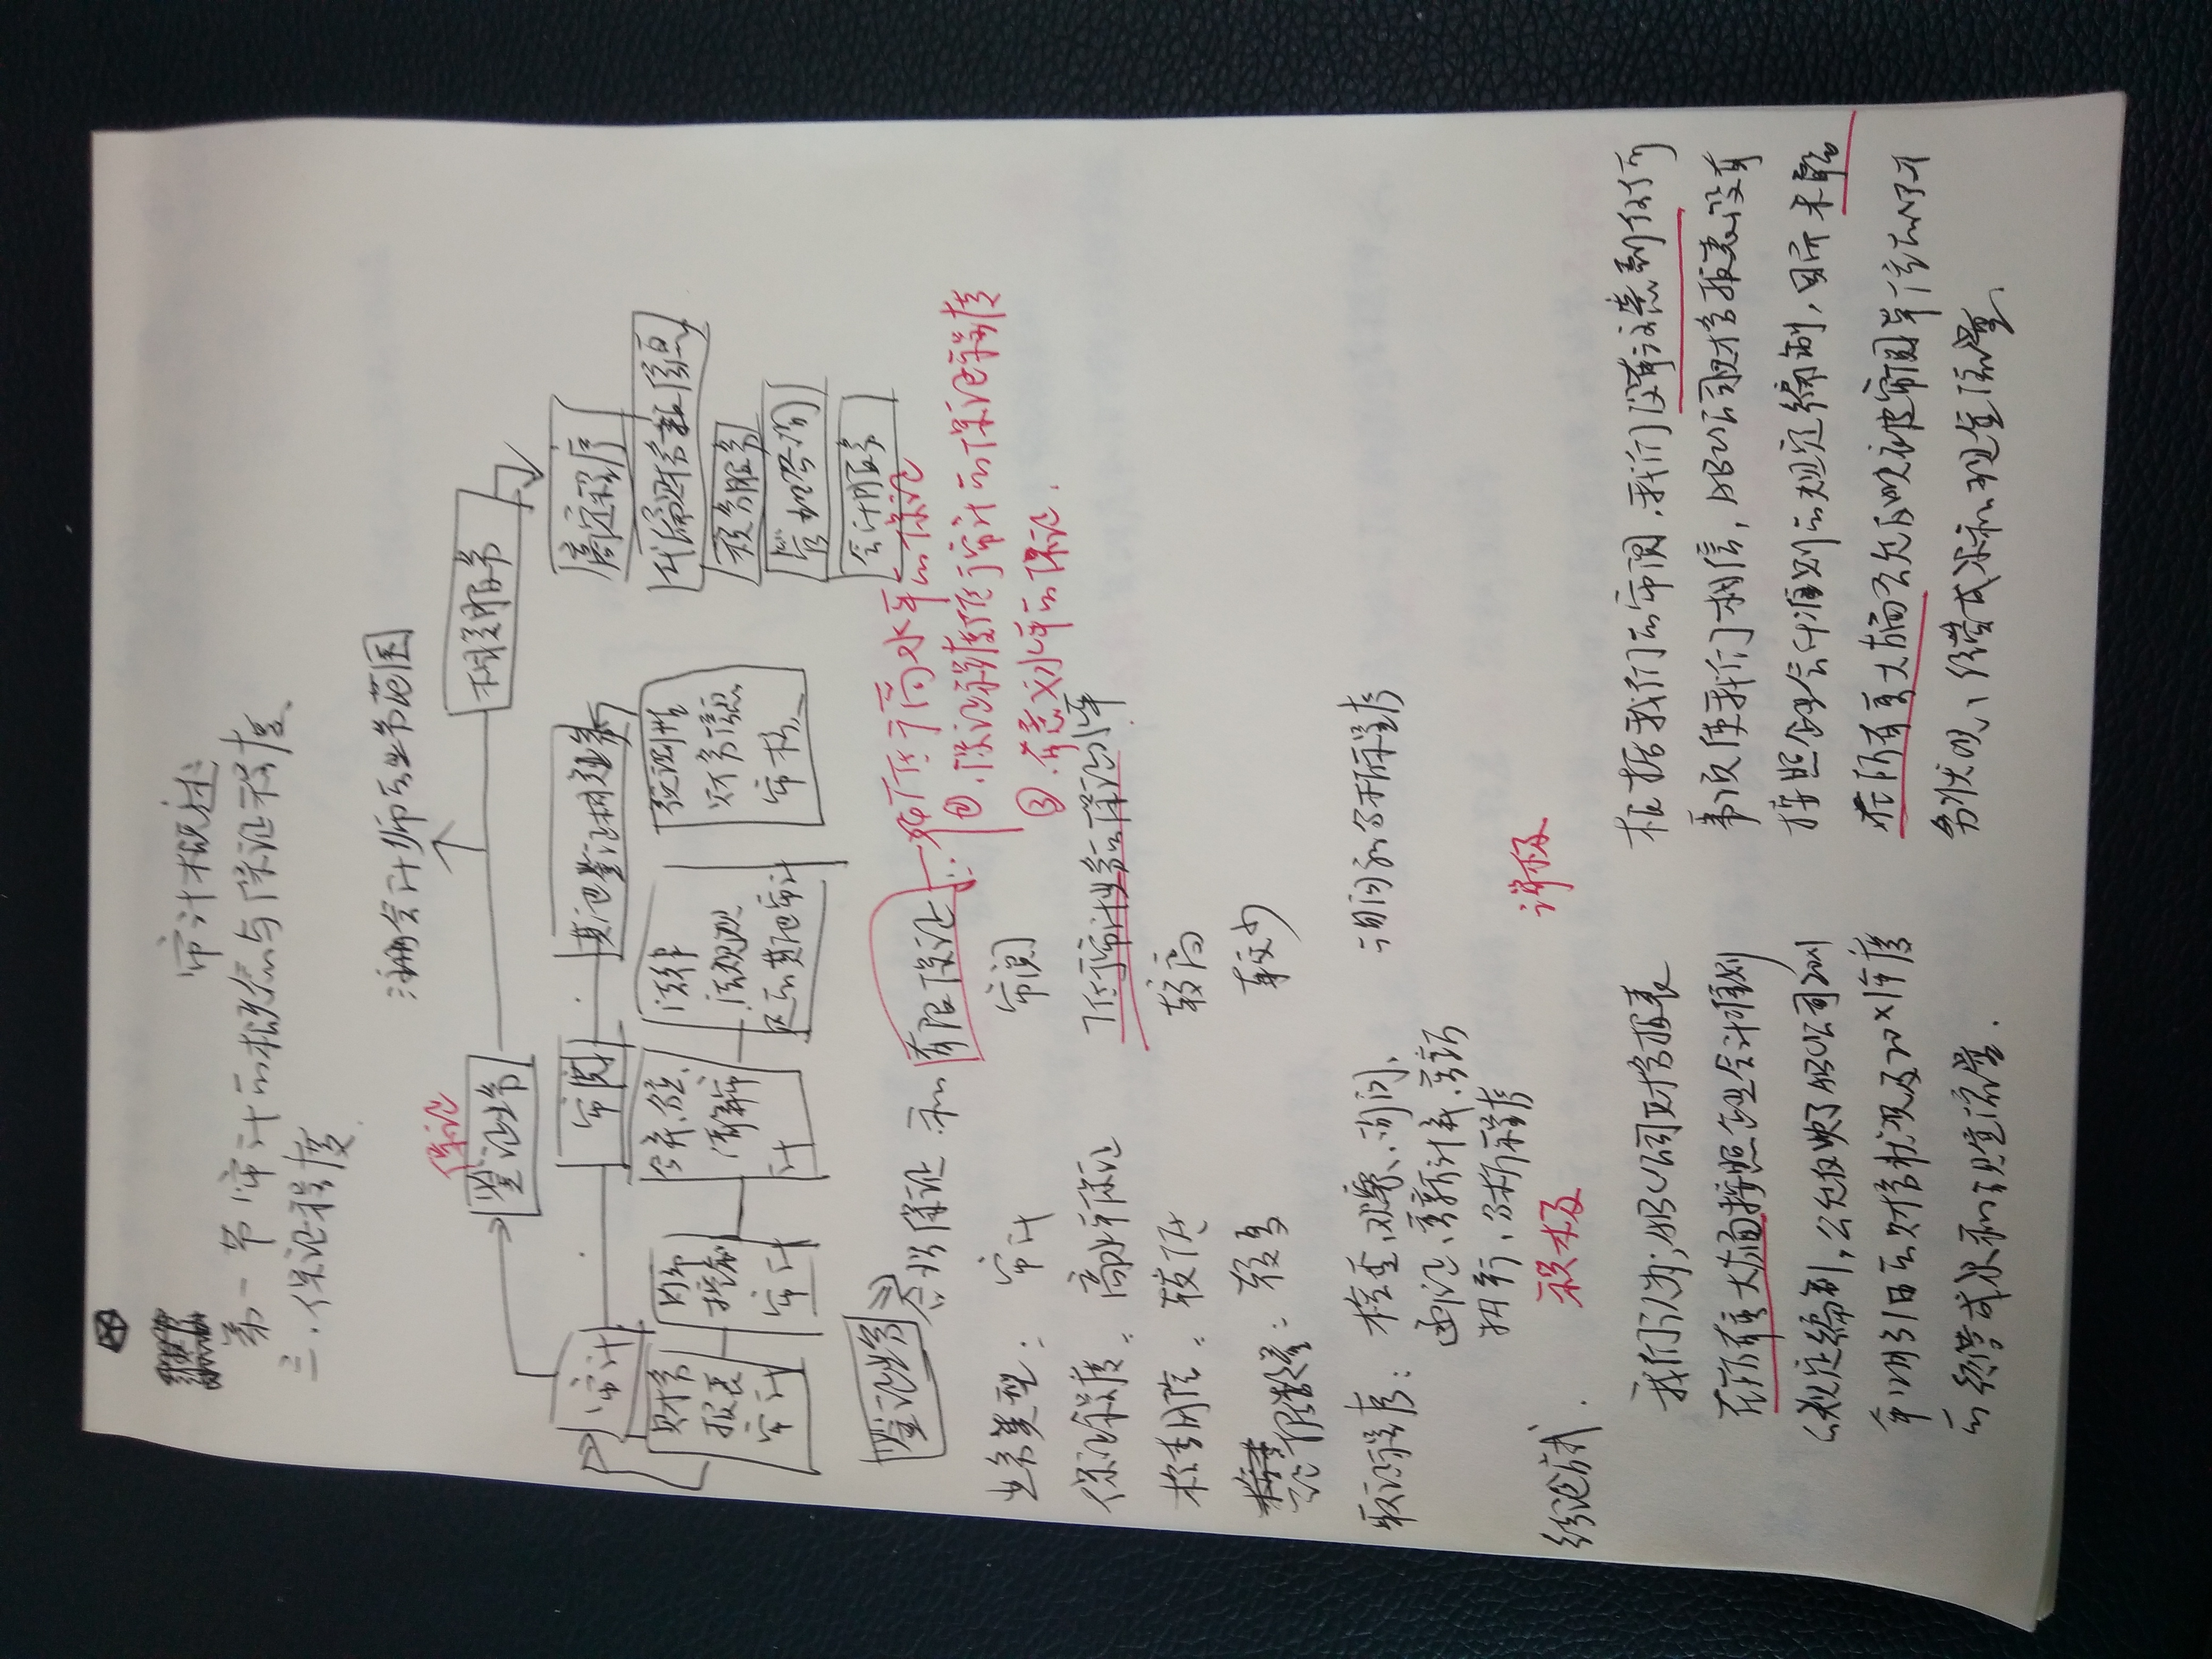 审计概述
第一节 审计的概念与保证程度
三、保证程度
注册会计师的业务范围
保证
鉴证业务
相关服务
审计
审阅
其他鉴证业务
商定程序
代编财务信息
税务服务
管理咨询
会计服务
财务
报表
审计
内部
控制
审计
合并、分立、
清算审
计
法律
法规规
定的其他审计
预测性
财务信息
审核
鉴证业务
合理保证 和 有限保证
①低于高水平的保证
②保证程度低于审计的保证程度
③有意义水平的保证.
业务类型: 审计 审阅
保证程度: 高水平保证 低于审计业务的保证水平
检查风险: 较低 较高
证据数量: 较多 较少
取证程序: 检查、观察、询问、 询问和分析程序
函证、重新计算、重新
执行、分析程序
结论方式. 积极 消极
我们认为,ABC公司财务报表
在所有重大方面按照企业会计准则
的规定编制,公允反映了ABC公司20×1
年12月31日的财务状况及20×1年度
的经营成果和现金流量.
根据我们的审阅,我们没有注意到任何
事项使我们相信,ABC公司财务报表没有
按照企业会计准则的规定编制,因而未能
在所有重大方面公允反映被审阅单位的财
务状况、经营成果和现金流量.